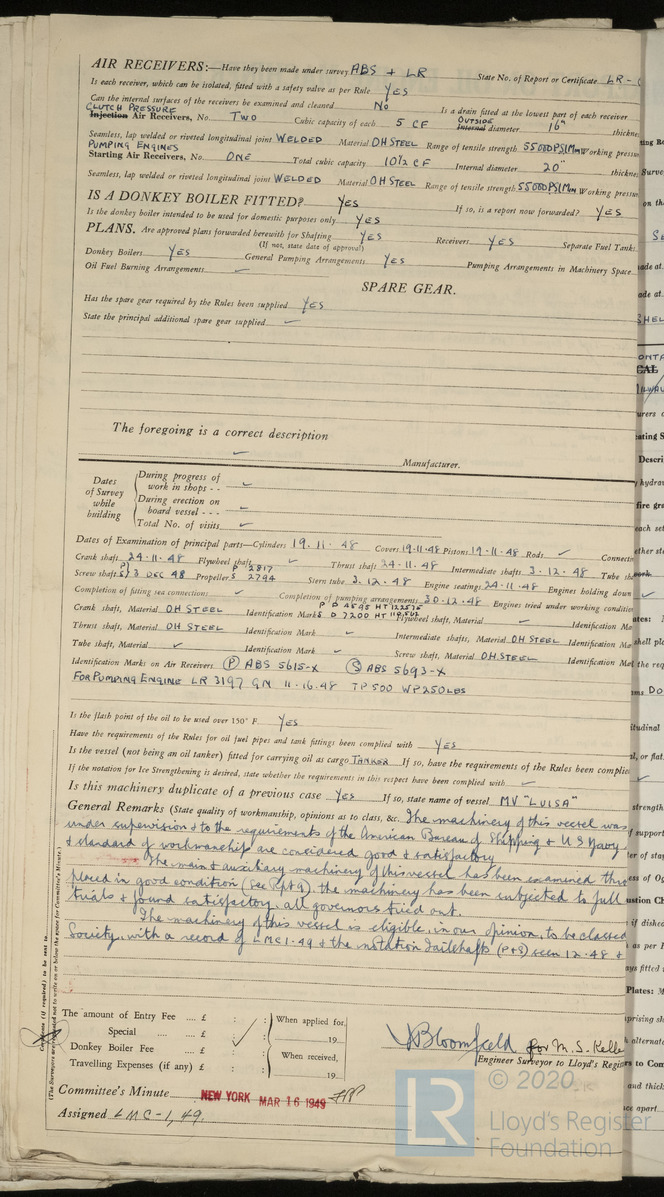 AIR RECEIVERS:—Have they been made under survey ABS + LR State No. of Report or Certificate LR-
Is each receiver, which can be isolated, fitted with a safety valve as per Rule YES
Can the internal surfaces of the receivers be examined and cleaned NO Is a drain fitted at the lowest part of each receiver
CLUTCH PRESSURE OUTSIDE
Injection Air Receivers, No. TWO Cubic capacity of each 5 CF Internal diameter 16" thickne
Seamless, lap welded or riveted longitudinal joint WELDED Material OH STEEL Range of tensile strength 55000 PSI Min Working pressu
PUMPING ENGINES
Starting Air Receivers, No. ONE Total cubic capacity 10½ CF Internal diameter 20" thickne
Seamless, lap welded or riveted longitudinal joint WELDED Material OH STEEL Range of tensile strength 55000 PSI Min Working pressur
IS A DONKEY BOILER FITTED? YES If so, is a report now forwarded? YES
Is the donkey boiler intended to be used for domestic purposes only YES
PLANS. Are approved plans forwarded herewith for Shafting YES Receivers YES Separate Fuel Tanks
(If not, state date of approval)
Donkey Boilers YES General Pumping Arrangements YES Pumping Arrangements in Machinery Space
Oil Fuel Burning Arrangements ✓
SPARE GEAR.
Has the spare gear required by the Rules been supplied YES
State the principal additional spare gear supplied ✓
The foregoing is a correct description
✓ Manufacturer.
Dates of Survey while building
During progress of work in shops - - ✓
During erection on board vessel - - - ✓
Total No. of visits ✓
Dates of Examination of principal parts—Cylinders 19.11.48 Covers 19.11.48 Pistons 19.11.48 Rods ✓ Connecti
Crank shaft 24-11-48 Flywheel shaft ✓ Thrust shaft 24-11-48 Intermediate shafts 3-12-48 Tube sh
P 2817
Screw shaft P S 3 DEC 48 Propeller S 2794 Stern tube 3.12.48 Engine seatings 24-11-48 Engines holding down
Completion of fitting sea connections ✓ Completion of pumping arrangements 30-12-48 Engines tried under working conditio
Crank shaft, Material OH STEEL Identification Mark Flywheel shaft, Material ✓ Identification Ma
Thrust shaft, Material OH STEEL Identification Mark ✓ Intermediate shafts, Material OH STEEL Identification Ma
Tube shaft, Material ✓ Identification Mark ✓ Screw shaft, Material O.H.STEEL Identification Mar
Identification Marks on Air Receivers (P) ABS 5615-X (S) ABS 5693-X
FOR PUMPING ENGINE LR 3197 GN 11-16-48 TP 500 WP 250 LBS
Is the flash point of the oil to be used over 150° F. YES
Have the requirements of the Rules for oil fuel pipes and tank fittings been complied with YES
Is the vessel (not being an oil tanker) fitted for carrying oil as cargo TANKER If so, have the requirements of the Rules been complie
If the notation for Ice Strengthening is desired, state whether the requirements in this respect have been complied with ✓
Is this machinery duplicate of a previous case Yes If so, state name of vessel MV "LUISA"
General Remarks (State quality of workmanship, opinions as to class, &c. The machinery of this vessel was
under supervision & to the requirements of the American Bureau of Shipping & U S Navy
& standard of workmanship are considered good & satisfactory
The main & auxiliary machinery of this vessel has been examined thro
placed in good condition (see Rpt 9), the machinery has been subjected to full
trials & found satisfactory, all governors tried out.
The machinery of this vessel is eligible, in our opinion, to be classed
Society, with a record of LMC 1-49 & the notation Tailshafts (P+S) seen 12.48 &
(The Surveyors are requested not to write on or below the space for Committee's Minute.)
The amount of Entry Fee .... £ : : When applied for,
Special .... £ : 19
Donkey Boiler Fee .... £ : : When received,
Travelling Expenses (if any) £ : : 19
JBloomfield for M. S. Kelle
Engineer Surveyor to Lloyd's Regis
Committee's Minute NEW YORK MAR 16 1949
Assigned LMC-1,49.
© 2020
LR
Lloyd's Register
Foundation